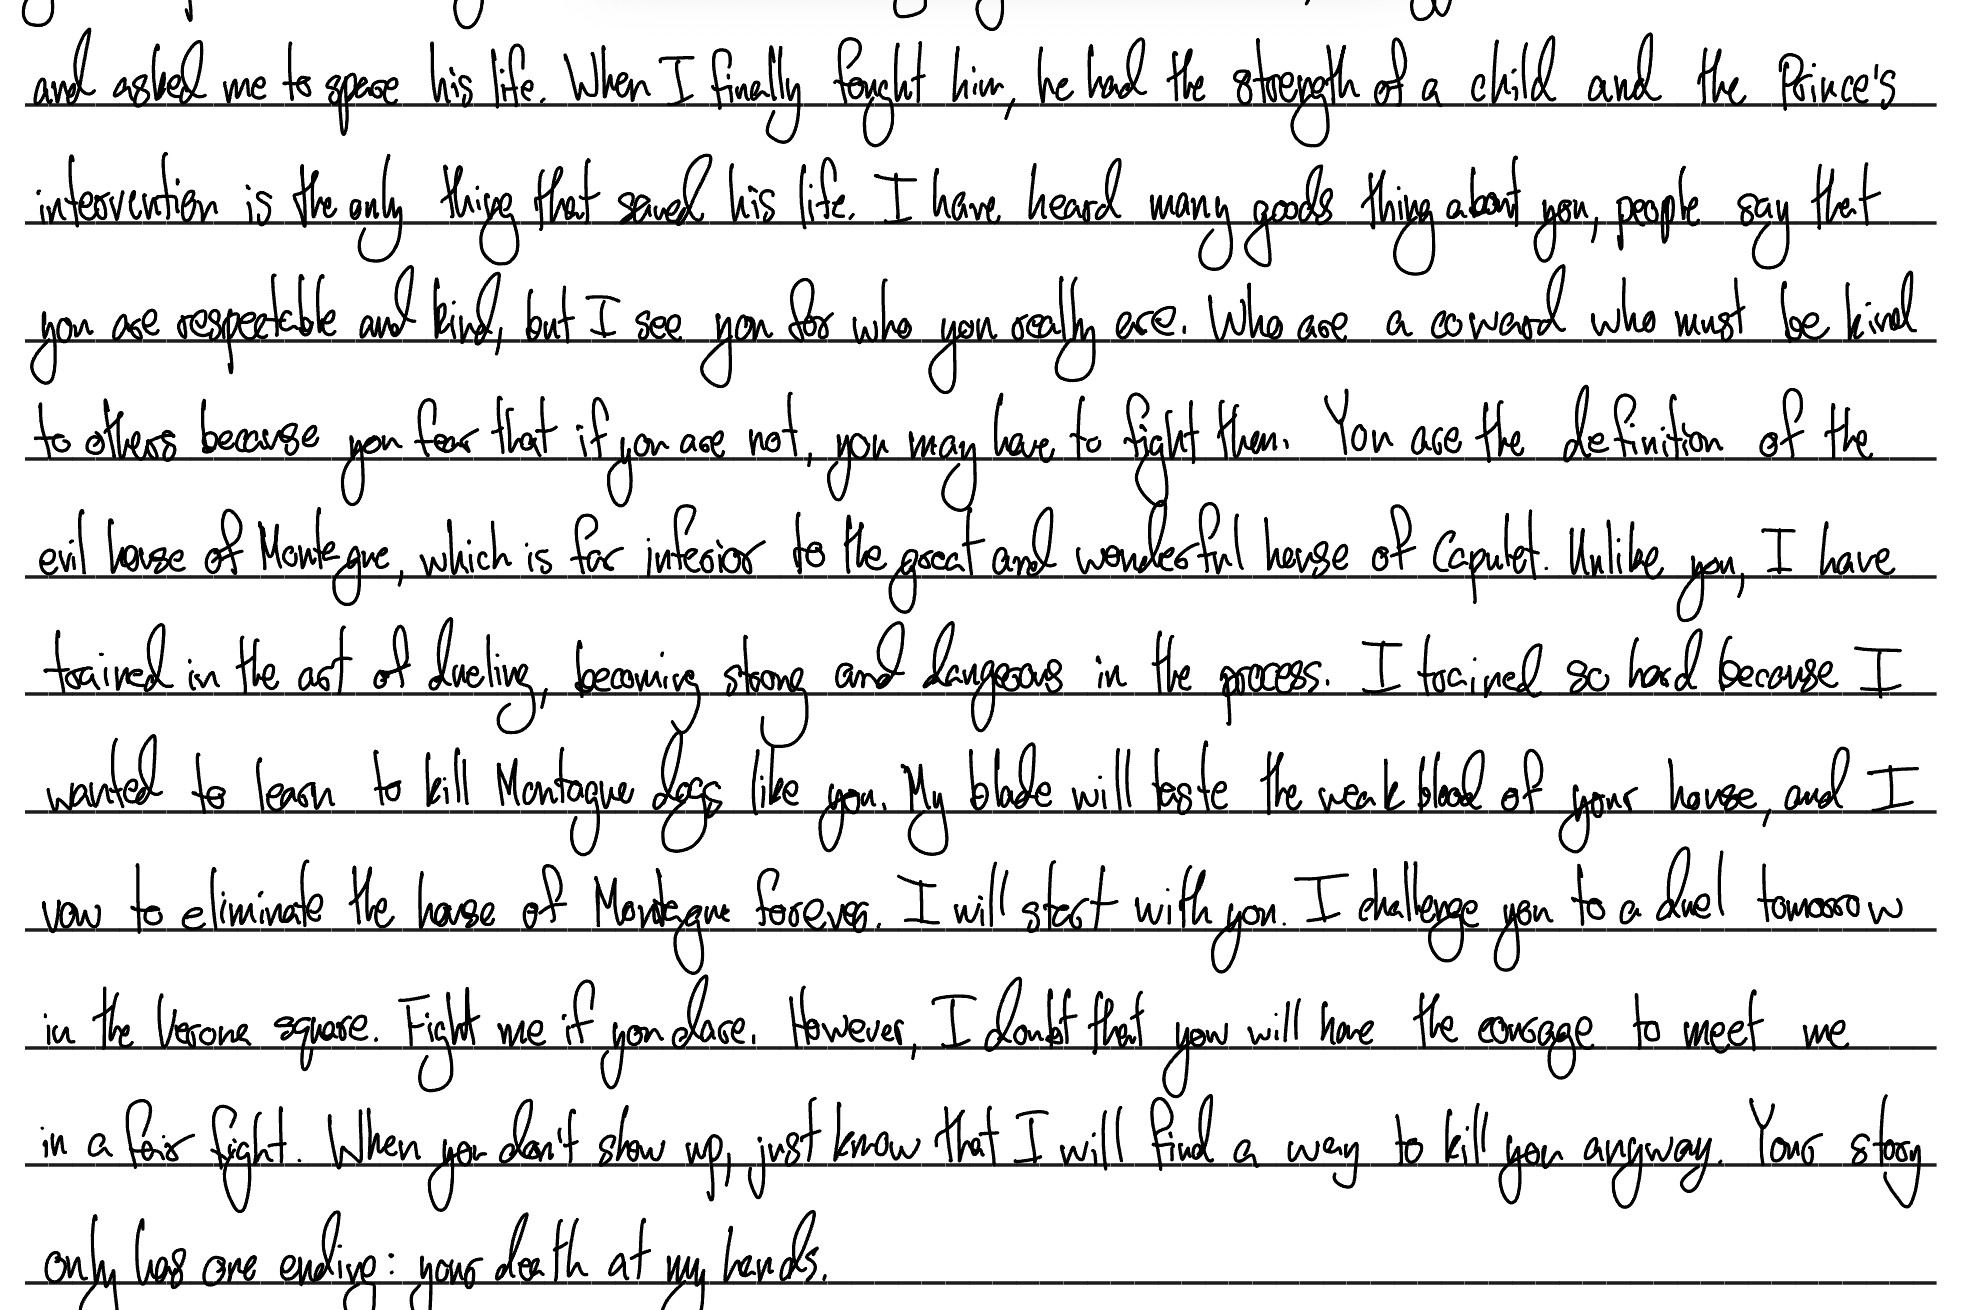 and asked me to spare his life. When I finally fought him, he had the strength of a child and the Prince's
intervention is the only thing that saved his life. I have heard many goods thing about you, people say that
you are respectable and kind, but I see you for who you really are. Who are a coward who must be kind
to others because you fear that if you are not, you may have to fight them. You are the definition of the
evil house of Montegue, which is far inferior to the great and wonderful house of Capulet. Unlike you, I have
trained in the art of dueling, becoming strong and dangerous in the process. I trained so hard because I
wanted to learn to kill Montague dogs like you. My blade will taste the weak blood of your house, and I
vow to eliminate the house of Montegue forever. I will start with you. I challenge you to a duel tomorrow
in the Verona square. Fight me if you dare. However, I doubt that you will have the courage to meet me
in a fair fight. When you don't show up, just know that I will find a way to kill you anyway. Your story
only has one ending: your death at my hands.